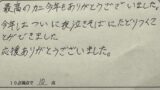 最高のカニ今年もありがとうございました。
今年はついに我に泣きそばにたどりつくこ
とができました
応援ありがとうございました。
10点満点で 10 点